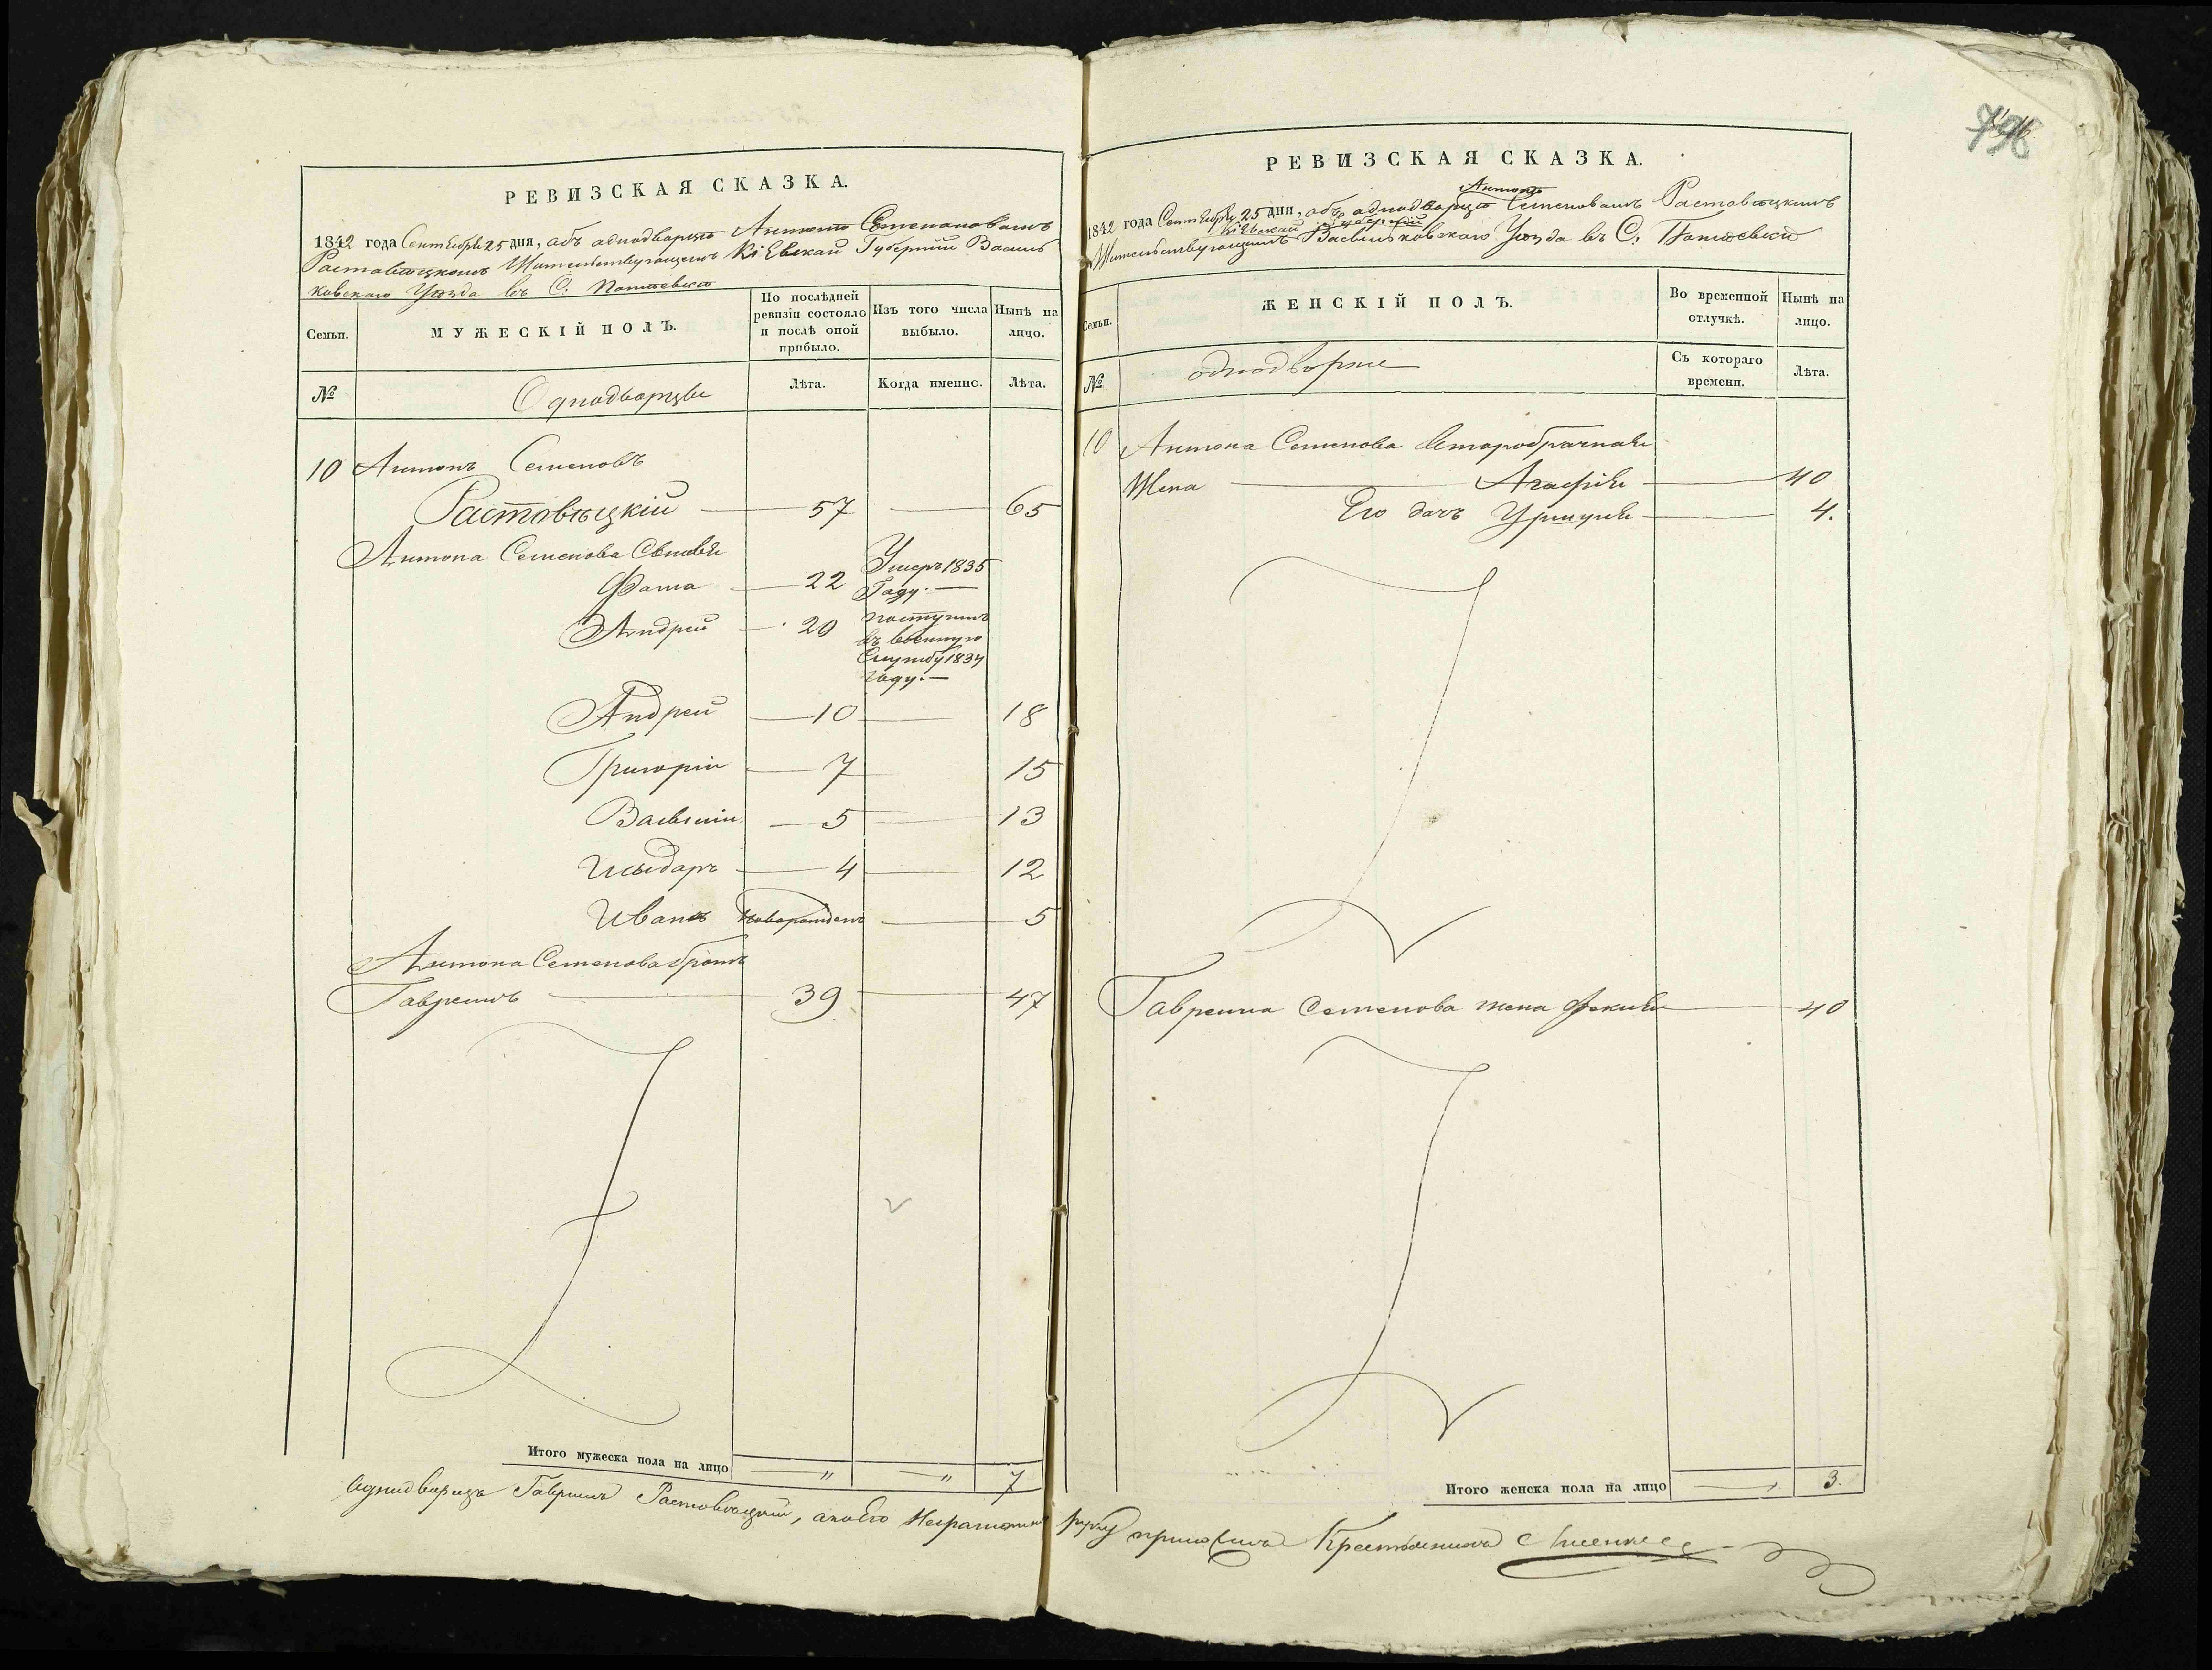 РЕВИЗСКАЯ СКАЗКА.
1842 года Сентебря 25 дня, объ аднодворце Антоне Семеновомъ
Растовецкомъ Жительствующемъ Кіевской Губерніи Василь
ковского Уезда въ С:
Семьи. МУЖЕСКІЙ ПОЛЪ. По послѣдней ревизіи состояло и послѣ оной прибыло. Изъ того числа выбыло. Нынѣ на лицо.
№ Однодворцы Лѣта. Когда именно. Лѣта.
10 Антонъ Семеновъ
Растовецкій — 57 — 65
Антона Семенова Сыновья
Фома — 22 Умеръ 1835
Году. —
Андрей — 20 поступилъ
въ военную
Службу 1834
году. —
Андрей — 10 — 18
Григорій — 7 — 15
Василій — 5 — 13
Исыдоръ — 4 — 12
Иванъ Новорожденъ — 5
Антона Семенова братъ
Гаврилъ — 39 — 47
Итого мужеска пола на лицо — „ — „ 7
Аднодворецъ Гаврилъ Растовецкій, а по Его Неграмотности
796
РЕВИЗСКАЯ СКАЗКА.
Антоне
1842 года Сентебря 25 дня, объ аднодворце Семеновомъ Растовецкомъ
Кіевской Губерніи
Жительствующемъ Васильковского Уезда въ С:
Семьи. ЖЕНСКІЙ ПОЛЪ. Во временной отлучкѣ. Нынѣ на лицо.
№ однодворки Съ котораго времени. Лѣта.
10 Антона Семенова второбрачная
Жена — Агафія — 40
Его дочь — 4.
Гаврила Семенова жена — 40
Итого женска пола на лицо — 3.
руку приложилъ Крестьянинъ